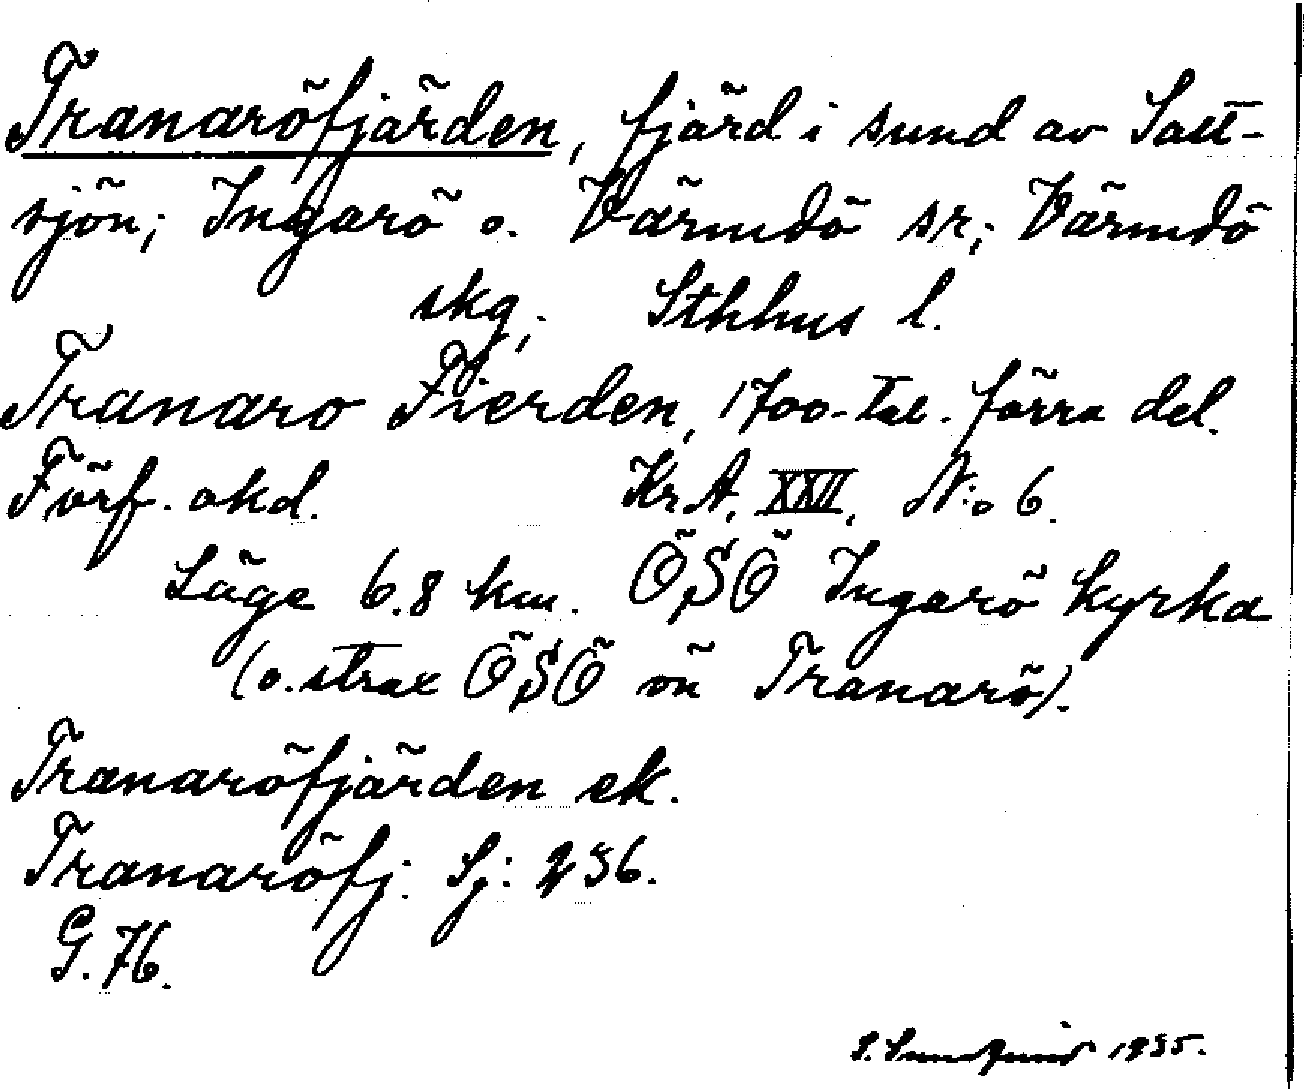 Tranaröfjärden, fjärd i sund av Salt-
sjön; Ingarö o. Värmdö sr; Värmdö
skg; Sthhus l.
Tranaro Fierden, 1700-tal. förra del.
Förf. okd. Kr.A. XXII, N:o 6.
Läge 6.8 km. ÖSÖ Ingarö kyrka
(o. strax ÖSÖ om Tranarö).
Tranaröfjärden ek.
Tranaröfj. Sj: 236.
G. 76.
S. 1935.